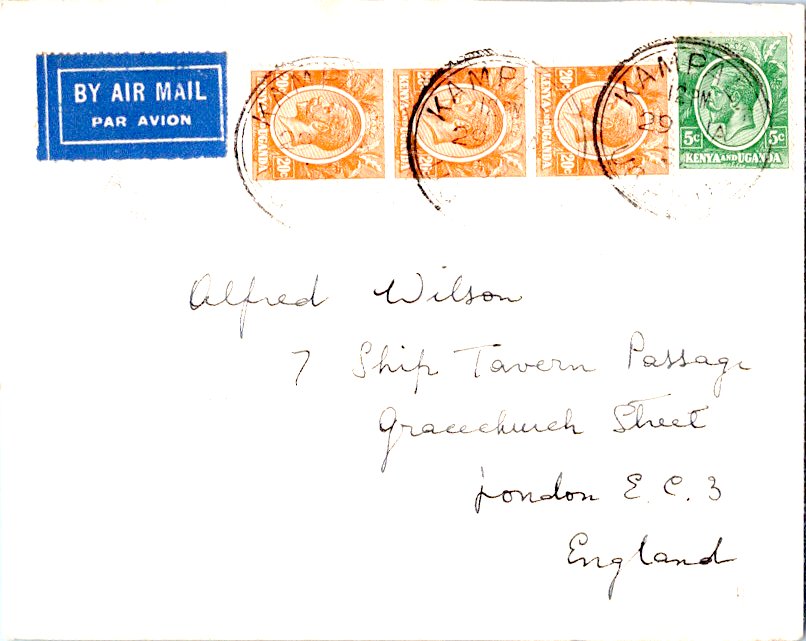 BY AIR MAIL
PAR AVION
20c KENYA AND UGANDA 20c
20c KENYA AND UGANDA 20c
20c KENYA AND UGANDA 20c
5c 5c
KENYA AND UGANDA
KAMPA
KAMPA
12 PM
29
KAMPA
12 PM
29
Alfred Wilson
7 Ship Tavern Passage
Gracechurch Street
London E. C. 3
England